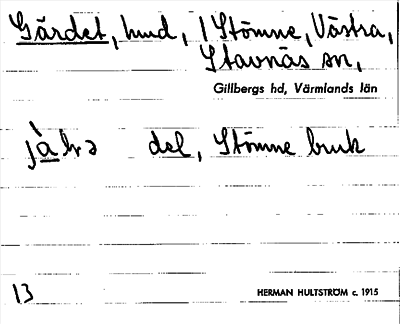 Gärdet, hmd, / Stömne, Västra,
Stavnäs sn,
Gillbergs hd, Värmlands län
del, Stömne bruk
13 HERMAN HULTSTRÖM c. 1915